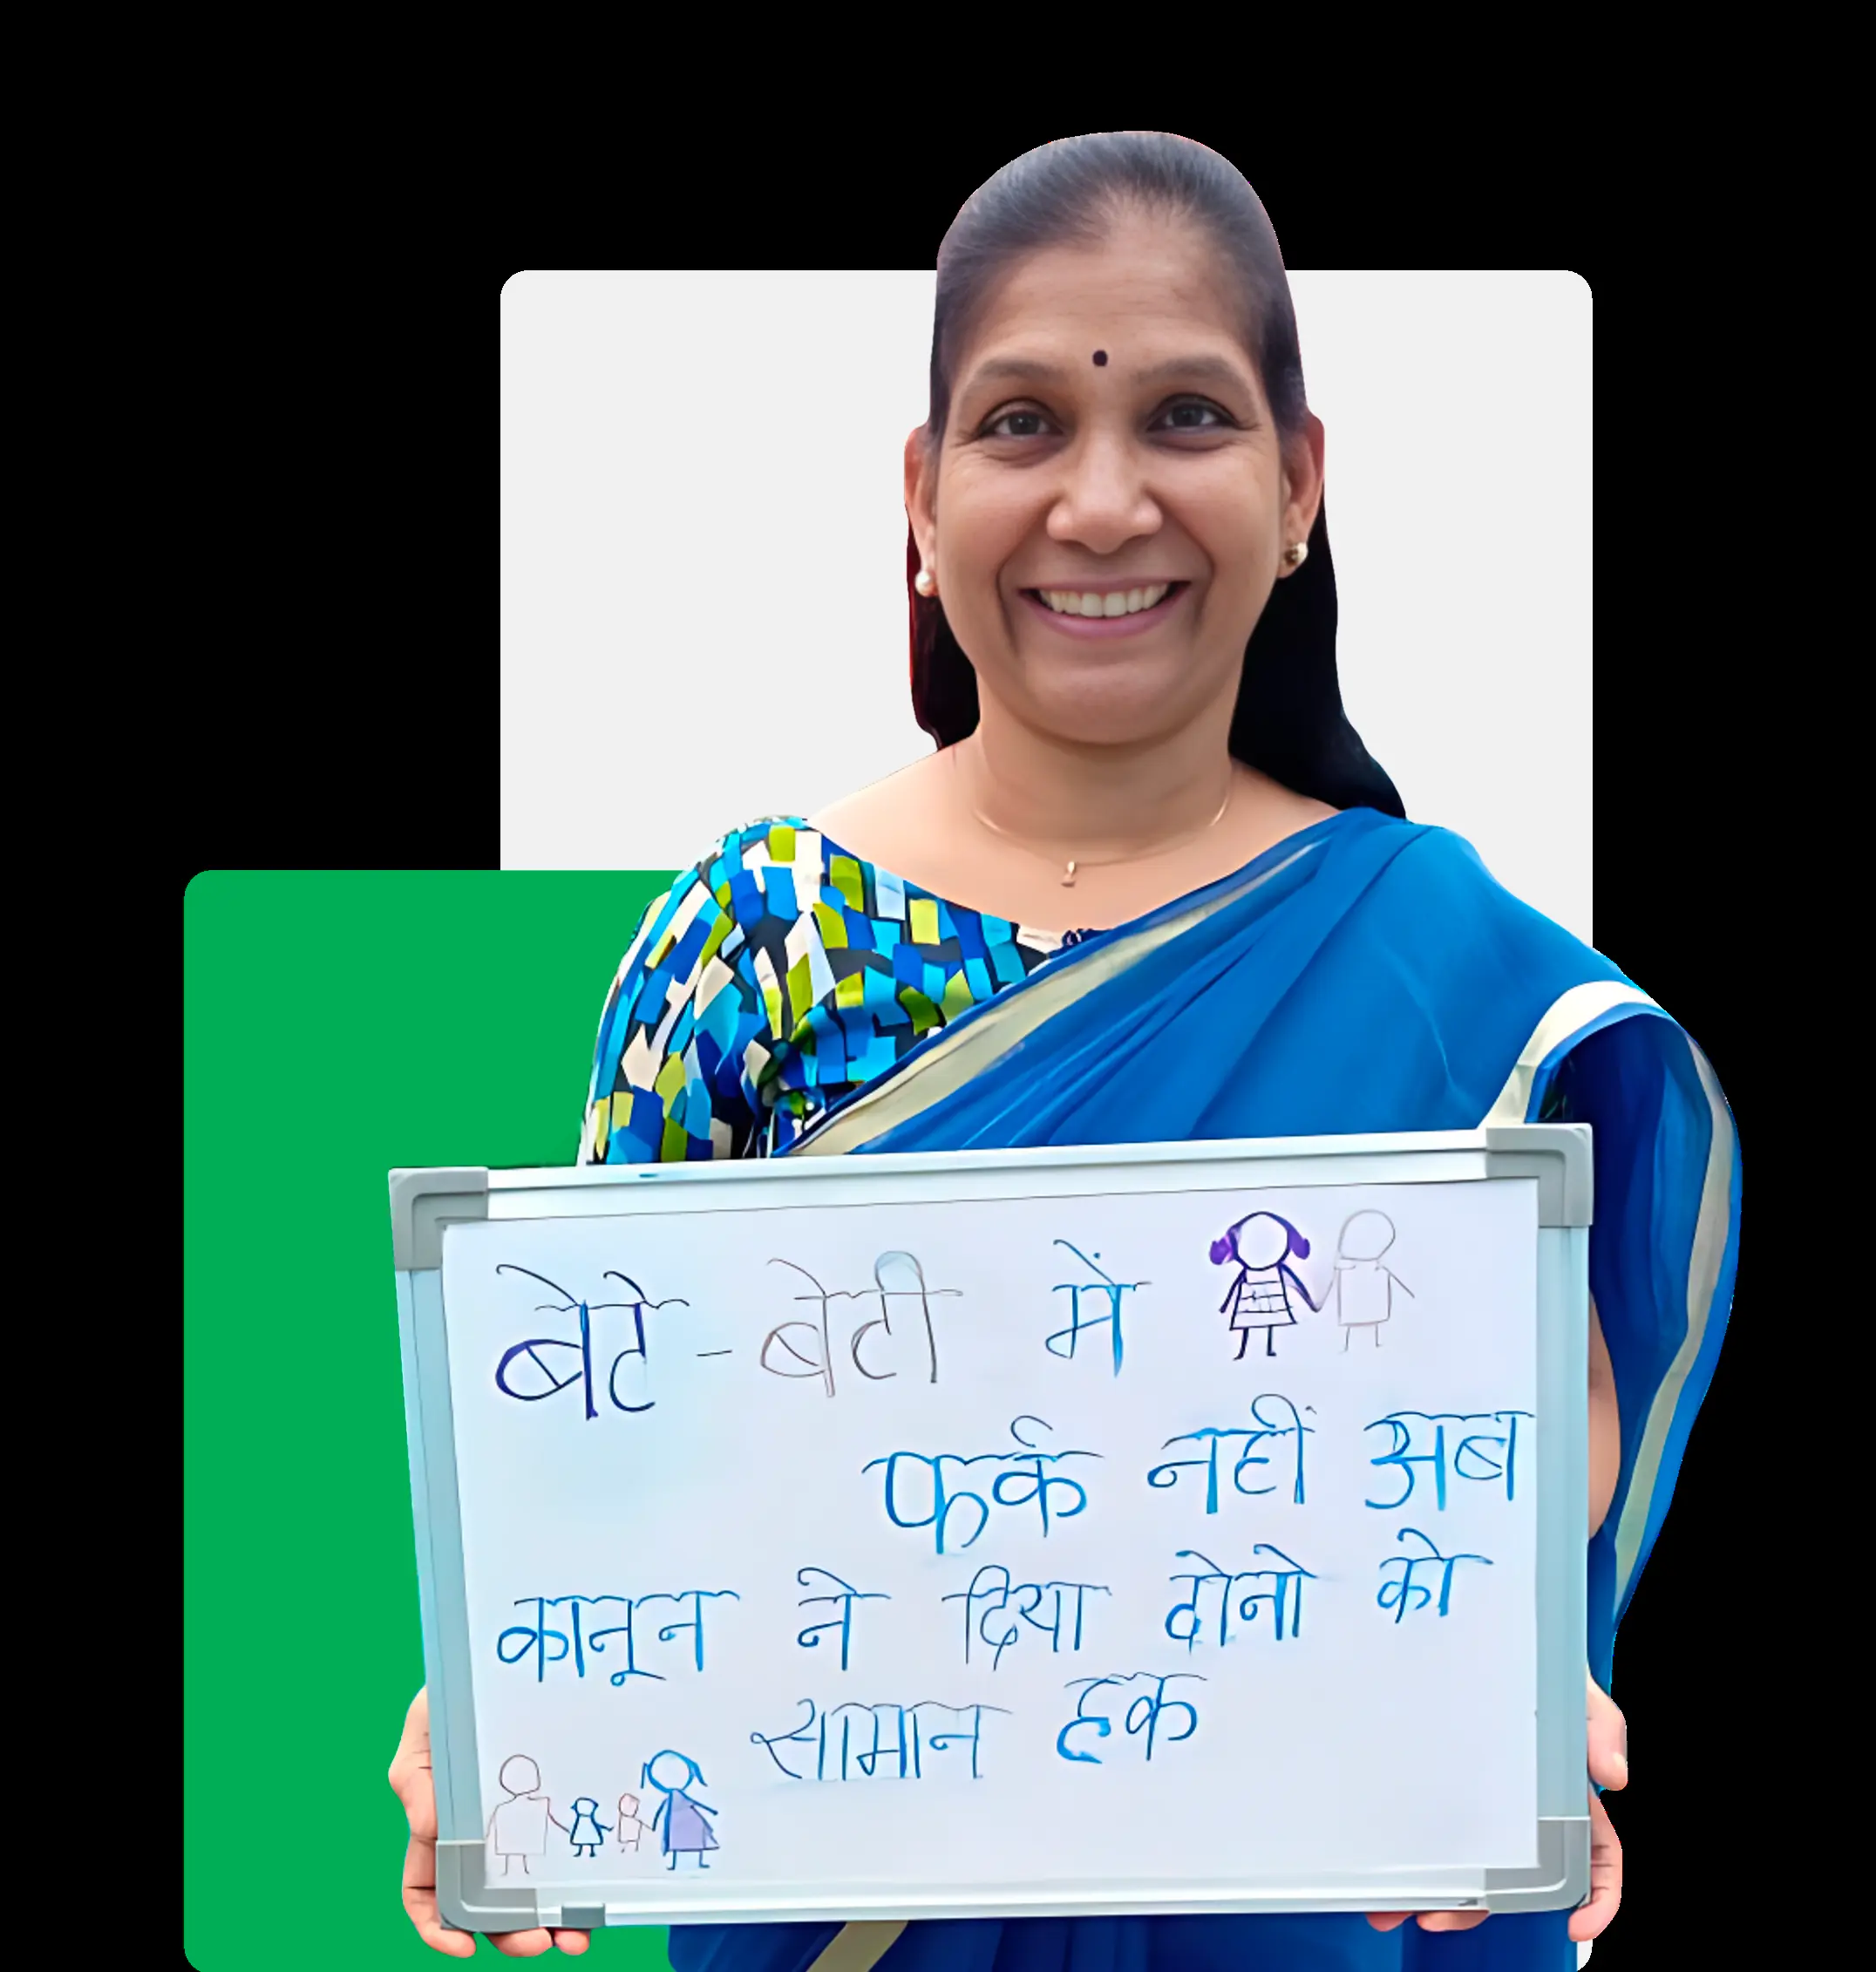 बेटे - बेटी में
फर्क नहीं अब
कानून ने दिया दोनो को
सामान हक